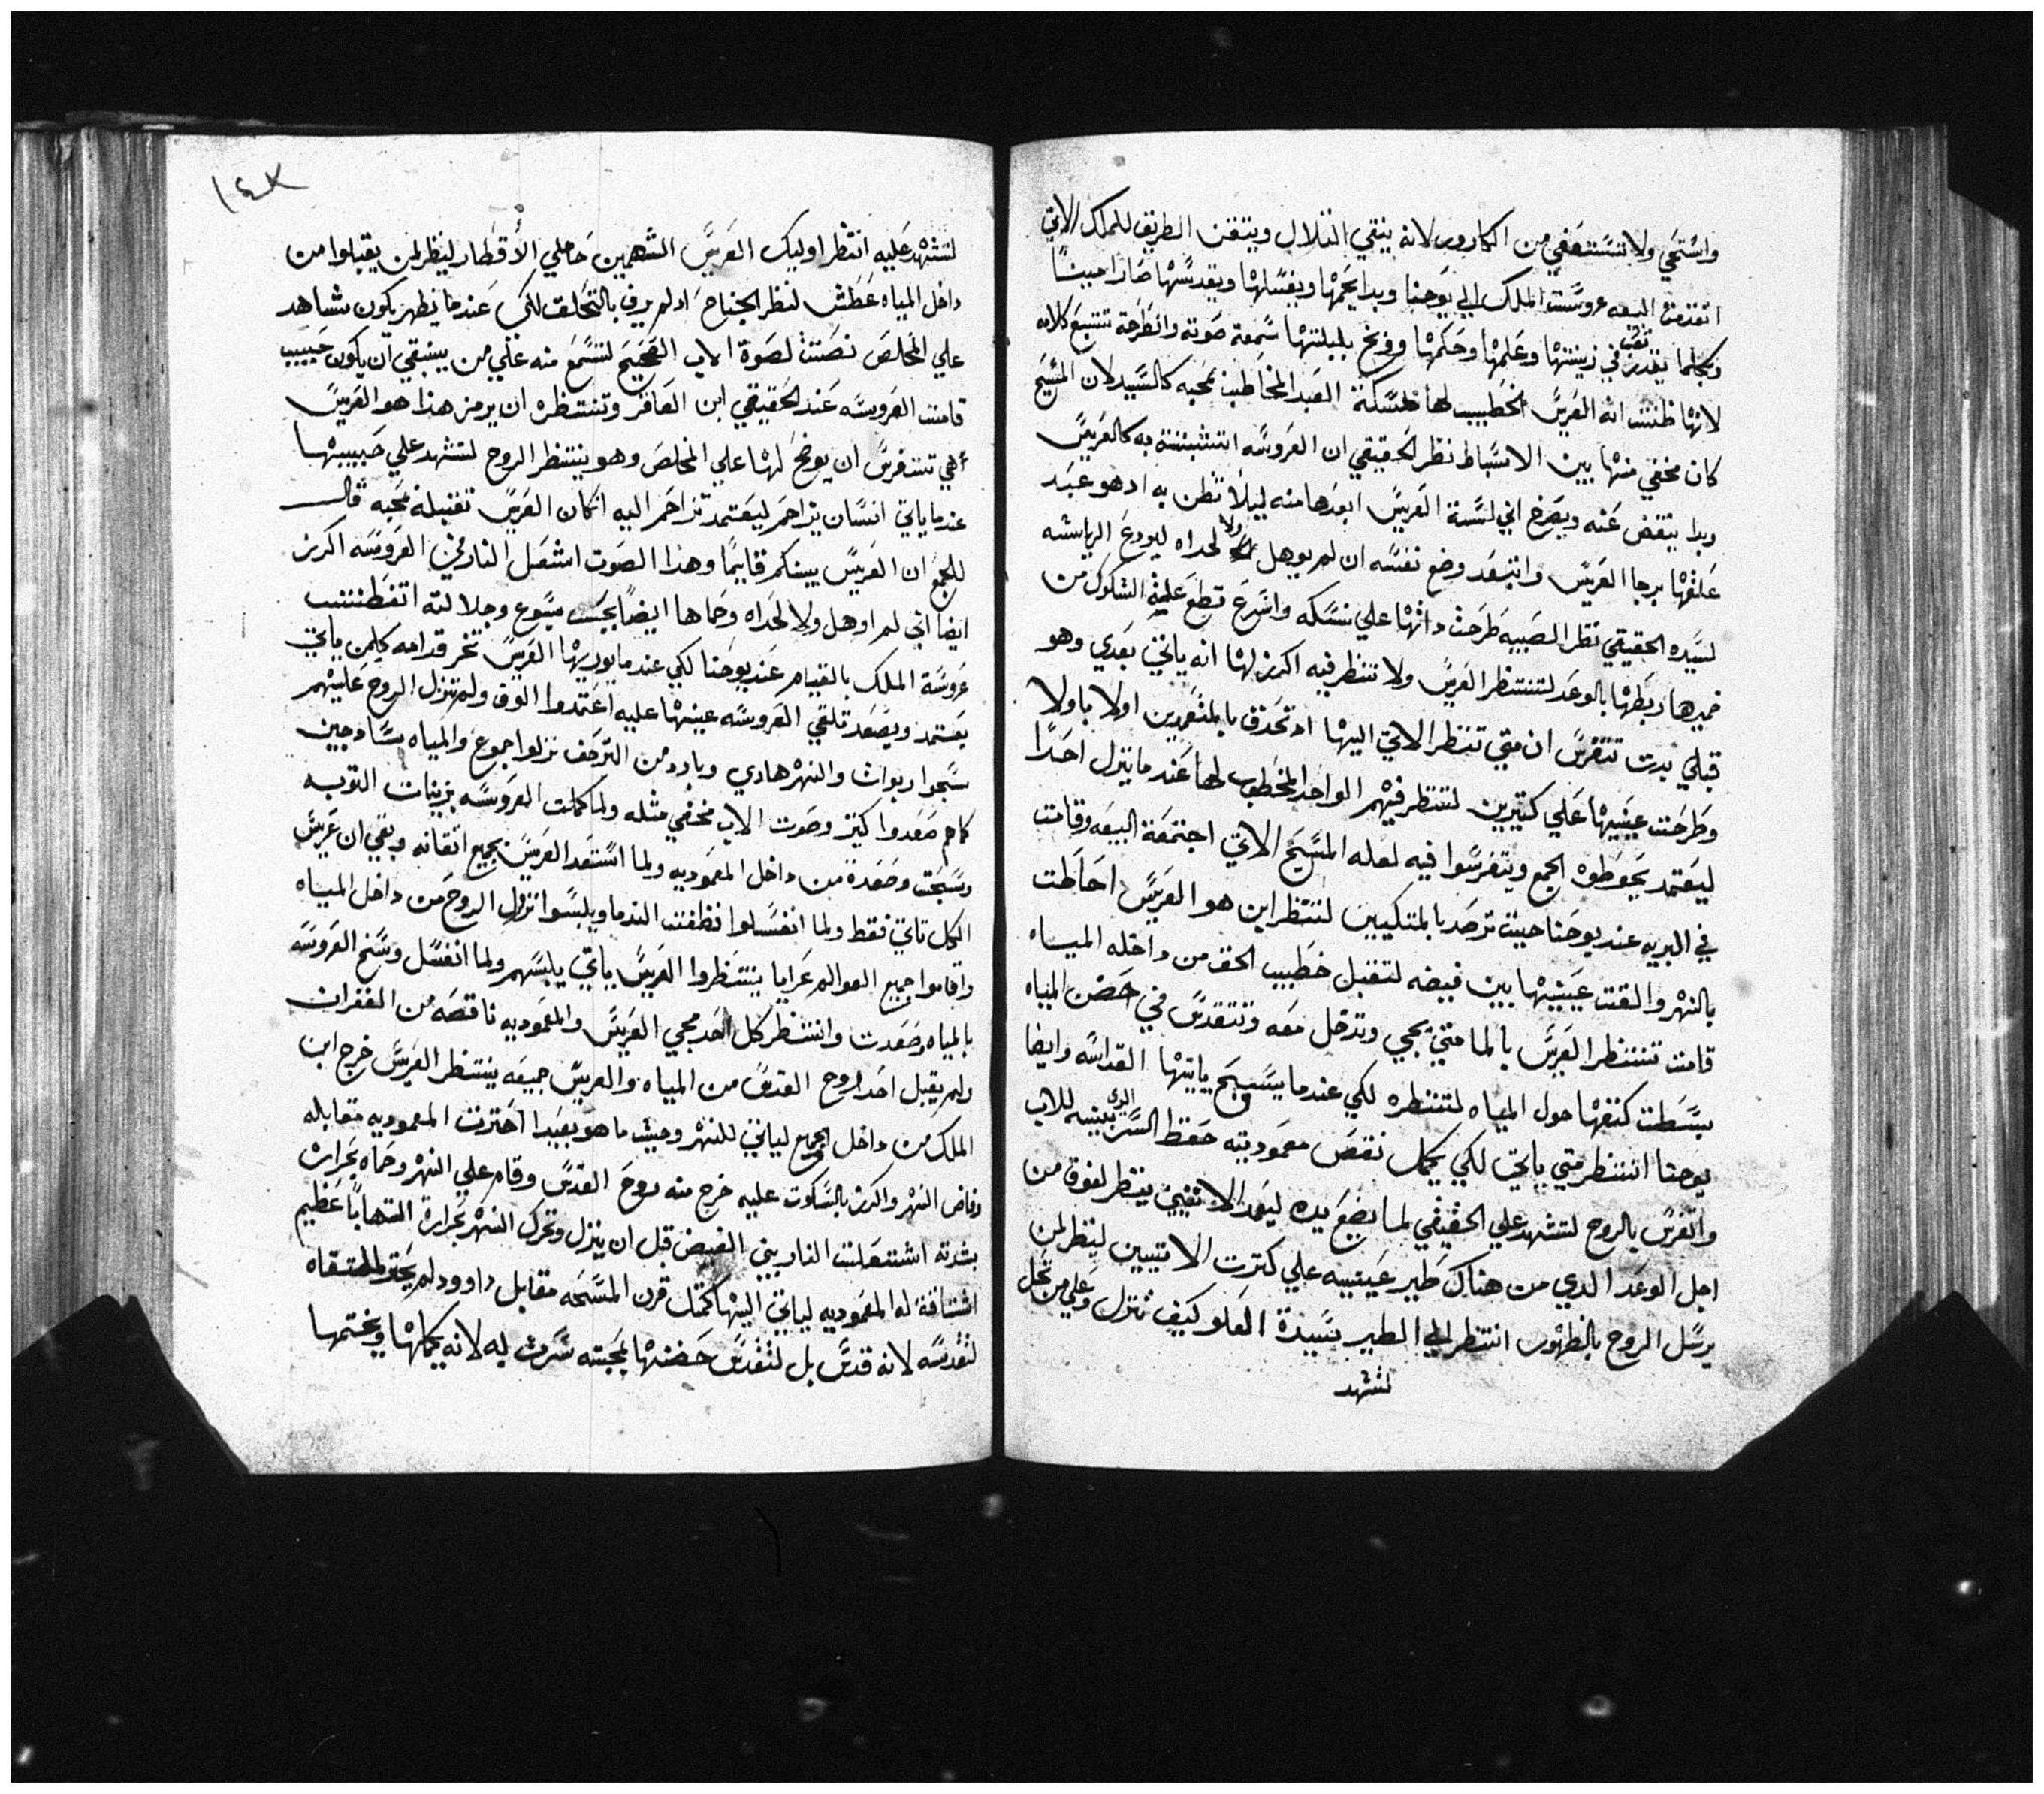 واستحي ولا تستعفي من الكاروس لانه ينقي التلال ويتقن الطريق للملك الاتي
اتقدمت البيعه عروست الملك الي يوحنا وبدا يحمها ويغسلها ويقدسها صارا حبيبًا
وبكلما يقدر نقب في زينتها وعلمها وحكمها وفرنح بلبلتها سمعة صوته وانطرحة تتبع كلامه
لانها ظنت انه العريس الخطيب لها مسكنة العبد المخاطب بمحبه كالسيد لان المسيح
كان مخفي منها بين الاسباط نظر الحقيقي ان العروسه اتشبتة به كالعريس
وبدا ينفض عنه ويصرخ اني لسة العريس ابعدها منه ليلا تظن به اد هو عبد
علقها برجا العريس واتبعد وضع نفسه ان لم يوهل ولا لحداه ليودع الرياسه
لسيده الحقيقي نظر الصبيه طرحت داتها علي نسكه واسرع قطع علمة الشكوك من
ضميرها ربطها بالوعد لتنتظر العريس ولا تنظر فيه اكرز لها انه ياتي بعدي وهو
قبلي بدت تتفرس ان متي تنظر الاتي اليها اد تحدق بالمتعمدين اولا باولا
وطرحت عينيها علي كتيرين لتنظر فيهم الواحد المخطوب لها عندما ينزل احدًا
ليعتمد يحوطوه الجمع ويتفرسوا فيه لعله المسيح الاتي اجتمعة البيعه وقامت
في البريه عند يوحنا حيث ترصد بالمتكيين لتنظر اين هو العريس احاطت
بالنهر والقت عينيها بين فيضه لتقبل خطيب الحق من داخله المياه
قامت تنتظر العريس بالما متي يجي وتدخل معه وتتقدس في حضن المياه
بسطت كنفها حول المياه لتنظره لكي عندما يسبح ياتيها القداسه وايضا
يوحنا انتظر متي ياتي لكي يكمل نقص معموديته حفظ السر الدي بينه للاب
واتفرس بالروح لتشهد علي الحقيقي لما يضع يده ليعمد الاتيين ينظر لفوق من
اجل الوعد الدي من هناك طير عينيه علي كترت الاتيين لينظر لمن
يرسل الروح بالظهور انتظر الي الطير بسيدة العلو كيف تنزل وعلي من تحل
لتشهد
١٤٨
لتشهد عليه انتظر اوليك العريس الشهمين حاملي الأقطار لينظر لمن يقبلوا من
داخل المياه عطش لنظر الجناح اد لم يرف بالتحلق لكي عندما يظهر يكون شاهد
علي المخلص نصتت لصوة الاب الصحيح لتسمع منه علي من ينبغي ان يكون حبيب
قامت العروسه عند الحقيقي ابن العاقر وتنتظره ان يرمز هذا هو العريس
هي تتفرس ان يوضح لها علي المخلص وهو ينتظر الروح لتشهد علي حبيبها
عندما ياتي انسان يزاحم ليعتمد تزاحم اليه انكان العريس تقبله بمحبه قال
للجمع ان العريس بينكم قايمًا وهذا الصوت اشعل النار في العروسه اكرز
ايضا اني لم اوهل ولا لحداه وحماها ايضًا بحب يسوع وجلالته اتغطت
عروسة الملك بالقيام عند يوحنا لكي عندما يوريها العريس تخر قدامه كلمن ياتي
يعتمد ويصعد تلقي العروسه عينها عليه اعتمدوا الوف ولم تنزل الروح عليهم
سبحوا ربوات والنهر هادي وبادد من الترجف نزلوا جموع والمياه ساديين
كام صعدوا كتير وصوت الاب مخفي مثله ولما كملت العروسه بزينات التوبه
وسبحت وصعدة من داخل المعموديه ولما استعد العريس بجميع اتقانه وبقي ان عريس
الكل تاتي فقط ولما انغسلوا نظفت الندما ويلبسوا نزول الروح من داخل المياه
واقاموا جميع العوالم عرايا ينتظروا العريس ياتي يلبسهم ولما انغسل وسخ العروسه
بالمياه وصعدت وانتظر كل احد مجي العريس والمعموديه ناقصه من الغفران
ولم يقبل احد روح القدس من المياه والعريس جيعه ينتظر العريس خرج ابن
الملك من داخل الجمع لياتي للنهر وحيث ما هو بعيدا احترت المعموديه مقابله
وفاض النهر واكرز بالسكوت عليه خرج منه روح القدس وقام علي النهر وحماه بحرارت
بشدته اشتعلت النار بيني الفيض قبل ان ينزل وتحرك النهر بحرارة التهابًا عظيم
اشتاقة له المعموديه لياتي اليها كمثل قرن المسحه مقابل داوود لم يحق لملتقاه
لتقدسه لانه قدس بل لتقدس حضنها بمحبته سرت به لانه يكملها ويختمها